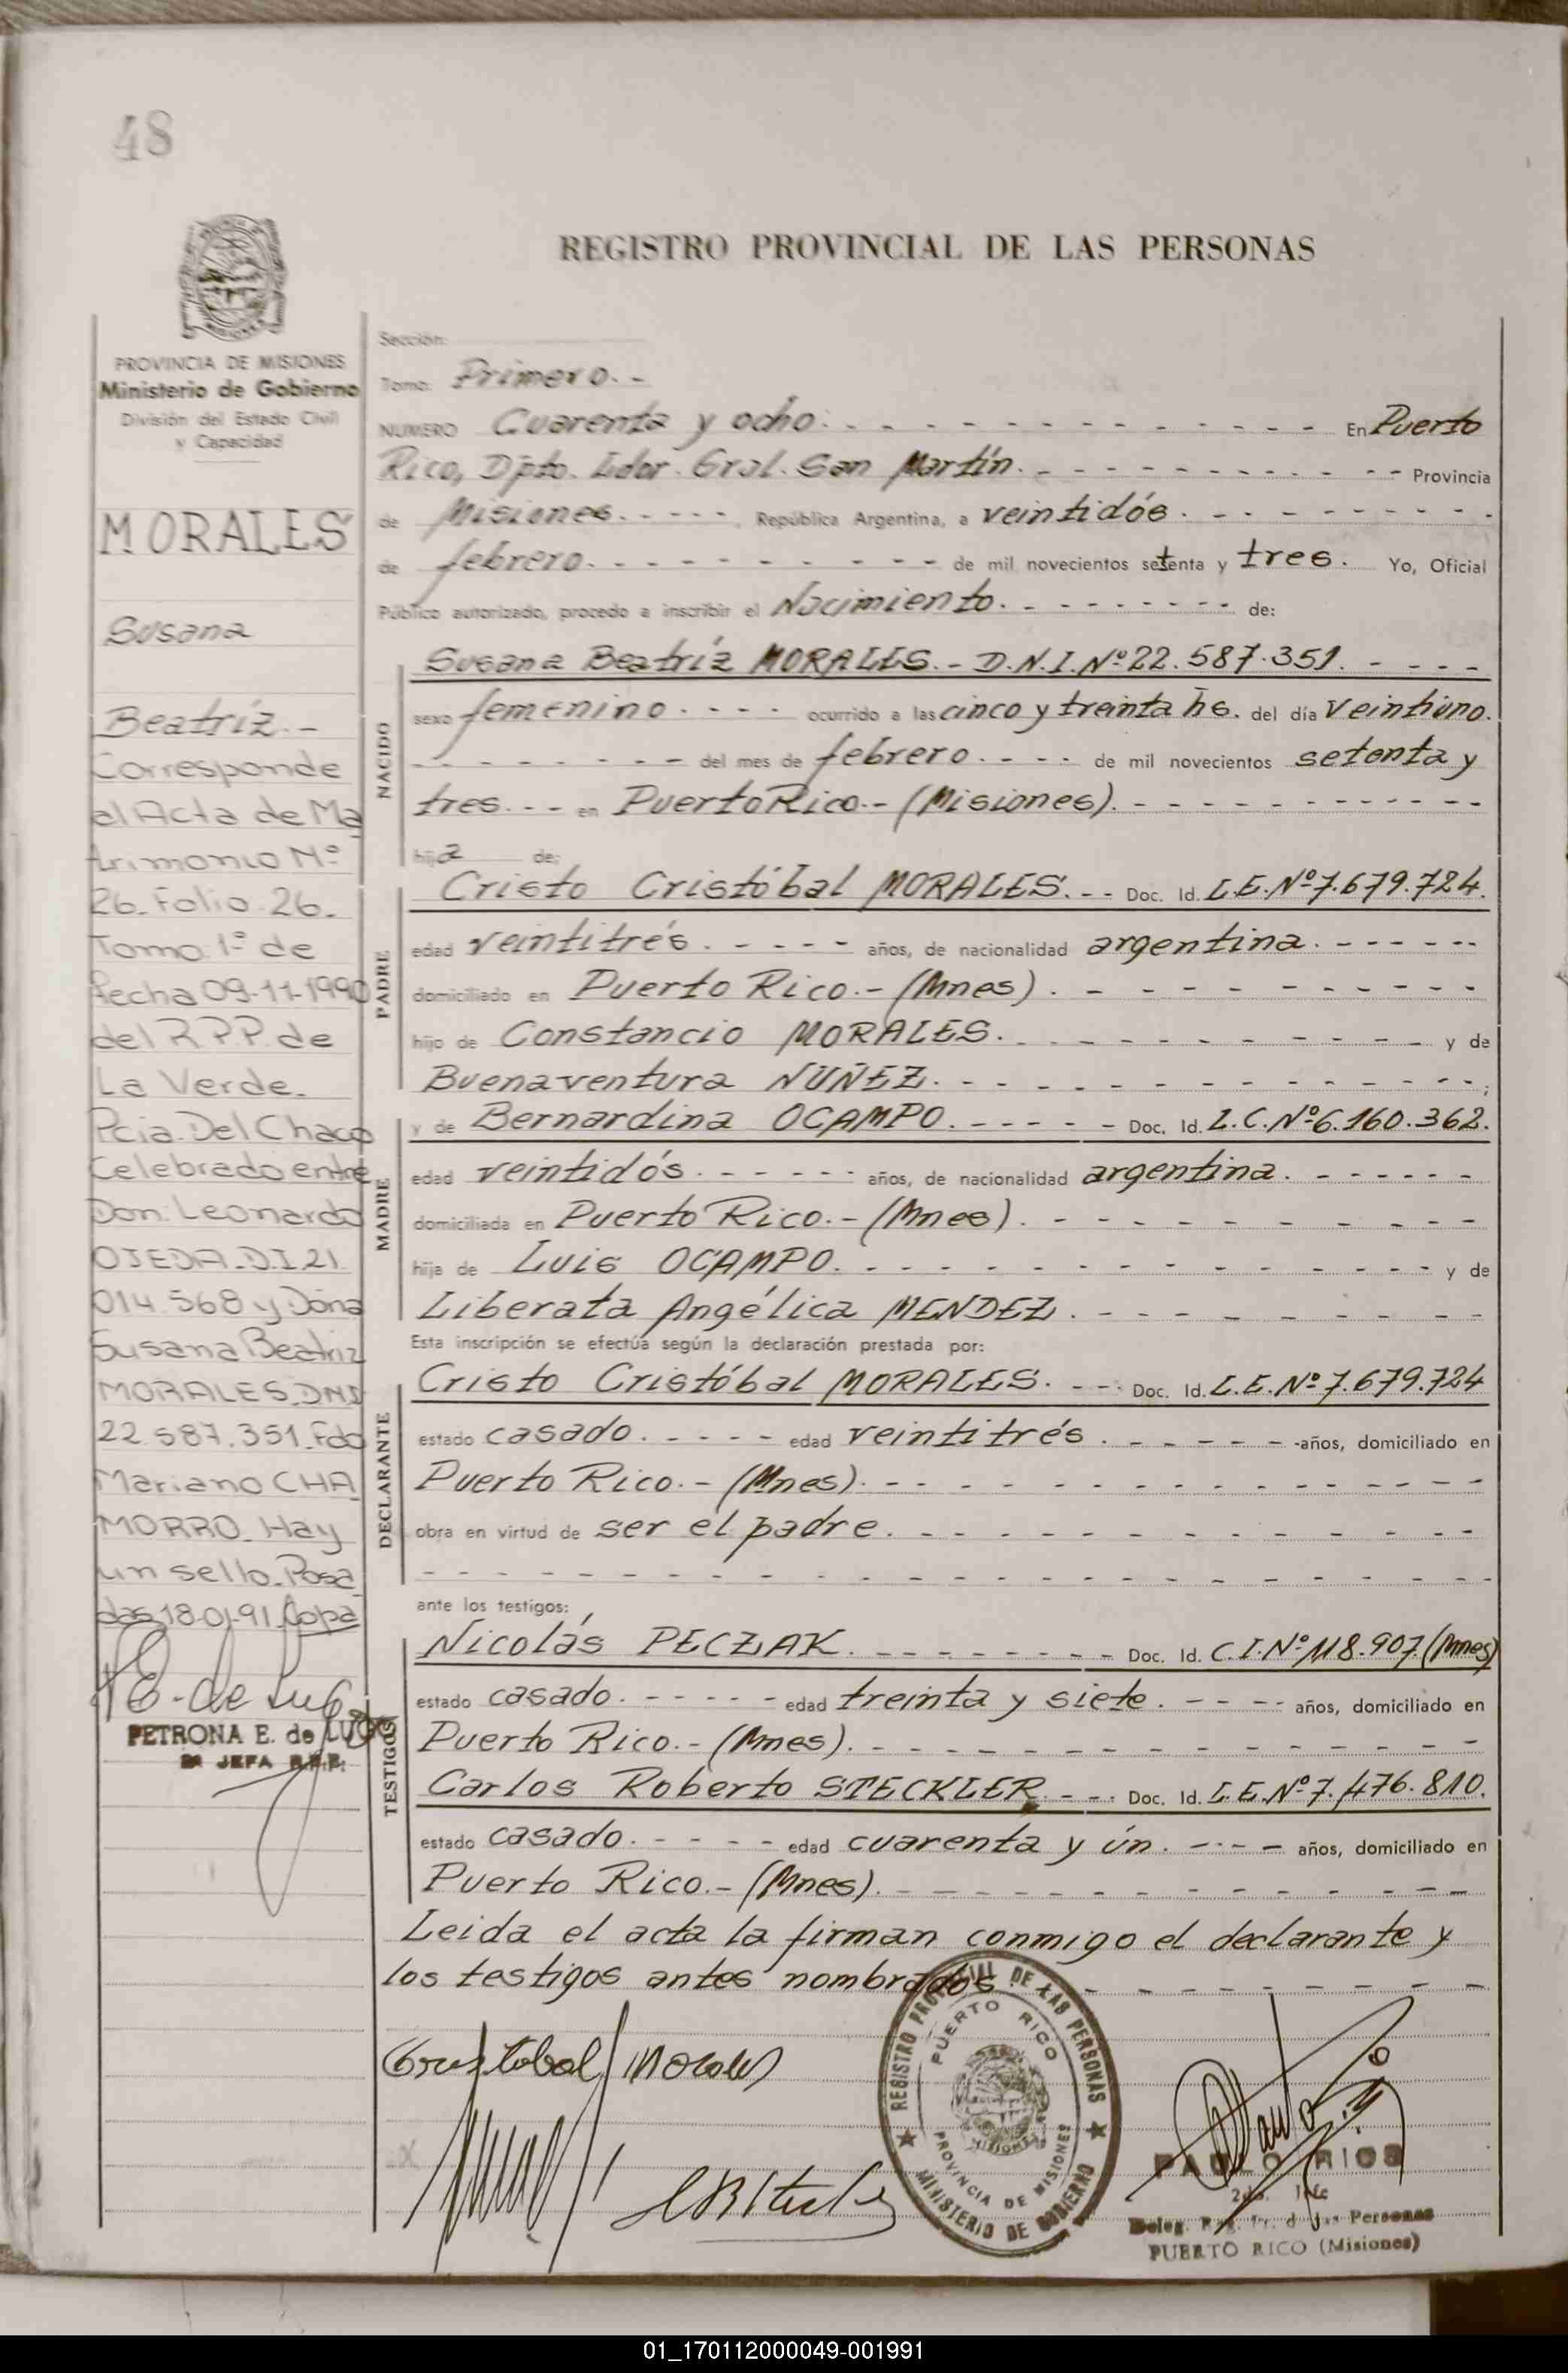 48
REGISTRO PROVINCIAL DE LAS PERSONAS
PROVINCIA DE MISIONES
Ministerio de Gobierno
División del Estado Civil
y Capacidad
MORALES
Susana
Beatríz.-
Corresponde
al Acta de Ma
trimonio Nº
26. Folio 26.
Tomo 1º de
Fecha 09-11-1990
del R.P.P. de
La Verde.
Pcia. Del Chaco
Celebrado entre
Don: Leonardo
OJEDA. D.I. 21.
014.568 y Dóna
Susana Beatriz
MORALES. DNI
22.587.351. Fdo
Mariano CHA
MORRO. Hay
un sello. Posa
das 18-01-91.
PETRONA E. de LUGO
JEFA R.P.P.
Sección:
Tomo: Primero.-
NUMERO Cuarenta y ocho. - - - En Puerto
Rico, Dpto. Ldor. Gral. San Martín. - - - Provincia
de Misiones. - - - República Argentina, a veintidós. - - -
de febrero. - - - de mil novecientos setenta y tres. Yo, Oficial
Público autorizado, procedo a inscribir el Nacimiento. - - - de:
NACIDO
Susana Beatríz MORALES.- D.N.I.Nº 22.587.351. - - -
sexo femenino. - - - ocurrido a las cinco y treinta hs. del día veintiuno.
- - - del mes de febrero. - - - de mil novecientos setenta y
tres. - - en Puerto Rico.- (Misiones). - - -
hija de:
PADRE
Cristo Cristóbal MORALES. - - Doc. Id. L.E.Nº 7.679.724.
edad veintitrés. - - - años, de nacionalidad argentina. - - -
domiciliado en Puerto Rico.- (Mnes). - - -
hijo de Constancio MORALES. - - - y de
Buenaventura NUÑEZ. - - - ;
MADRE
y de Bernardina OCAMPO. - - - Doc. Id. L.C.Nº 6.160.362.
edad veintidós. - - - años, de nacionalidad argentina. - - -
domiciliada en Puerto Rico.- (Mnes). - - -
hija de Luis OCAMPO. - - - y de
Liberata Angélica MENDEZ. - - -
Esta inscripción se efectúa según la declaración prestada por:
DECLARANTE
Cristo Cristóbal MORALES. - - Doc. Id. L.E.Nº 7.679.724
estado casado. - - - edad veintitrés. - - - años, domiciliado en
Puerto Rico.- (Mnes). - - -
obra en virtud de ser el padre. - - -
- - -
ante los testigos:
TESTIGOS
Nicolás PECZAK. - - - Doc. Id. C.I.Nº 118.907.(Mnes)
estado casado. - - - edad treinta y siete. - - - años, domiciliado en
Puerto Rico.- (Mnes). - - -
Carlos Roberto STECKLER. - - Doc. Id. L.E.Nº 7.476.810.
estado casado. - - - edad cuarenta y ún. - - - años, domiciliado en
Puerto Rico.- (Mnes). - - -
Leida el acta la firman conmigo el declarante y
los testigos antes nombrados. - - -
Cristobal Morales
REGISTRO PROVINCIAL DE LAS PERSONAS
PUERTO RICO
PROVINCIA DE MISIONES
MINISTERIO DE GOBIERNO
2do. Jefe
Deleg. Reg. Pr. de las Personas
PUERTO RICO (Misiones)
01_170112000049-001991